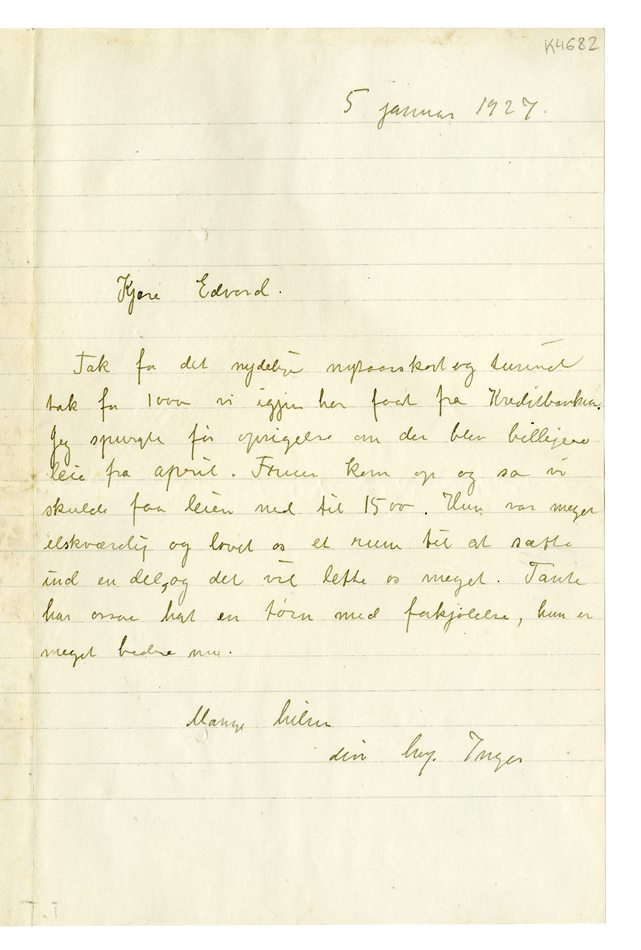 K4682
5 januar 1927.
Kjære Edvard.
Tak for det nydelige nytaarskort og tusind
tak for 1000 vi igjen har faat fra Kreditbanken.
Jeg spurgte før opsigelse om der blev billigere
leie fra april. Fruen kom op og sa vi
skulde faa leien ned til 1500. Hun var meget
elskværdig og lovet os et rum til at sætte
ind en del, og det vil lette os meget. Tante
har ossaa hat en törn med forkjölelse, hun er
meget bedre nu.
Mange hilsen
din hng. Inger